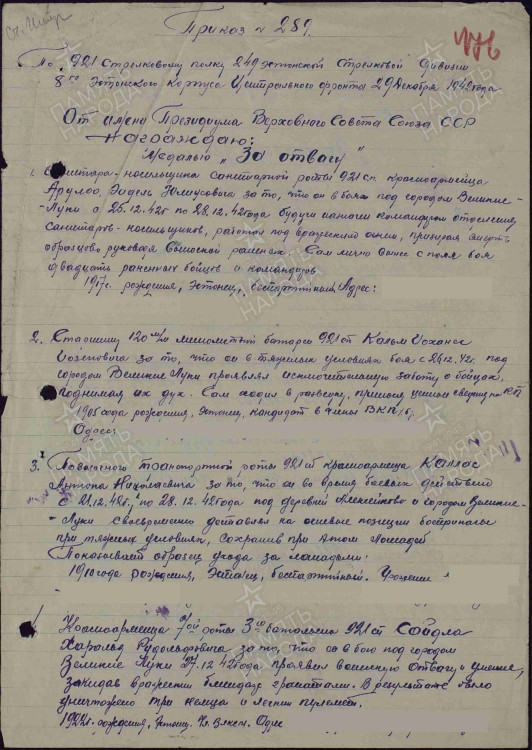 Приказ № 289.
По 921 Стрелковому полку 249 Эстонской Стрелковой дивизии
8го Эстонского Корпуса Центрального фронта 29 Декабря 1942 года
От имени Президиума Верховного Совета Союза ССР
Награждаю:
Медалью „За отвагу"
1. Санитара-носильщика санитарной роты 921 сп. красноармейца
за то, что он в боях под городом Великие-
-Луки с 25.12.42г по 28.12.42 года будучи командиром отделения
санитаров-носильщиков, работал под вражеским огнем, презирая смерть
образцово руководя выноской раненых. Сам лично вынес с поля боя
двадцать раненных бойцов и командиров
1917г. рождения, эстонец, беспартийный, Адрес:
2. Старшину 120 м/м минометной батареи 921 сп Кальм Иоханс
за то, что он в тяжелых условиях боя с 24.12.42г. под
городом Великие Луки проявлял исключительную заботу о бойцах,
поднимая их дух. Сам ходил в разведку, принося ценные сведения на КП
1905 года рождения, эстонец, кандидат в члены ВКП/б/.
Адрес:
3. Повозочного транспортной роты 921 сп красноармейца Каллас
Антона Николаевича за то, что он во время боевых действий
с 21.12.42г. по 28.12.42 года под деревней Алексейково и городом Великие-
-Луки своевременно доставлял на огневые позиции боеприпасы
при тяжелых условиях, сохранив при этом лошадей
Показывает образец ухода за лошадьми:
1910 года рождения, эстонец, беспартийный.
Красноармейца 7ой роты 3го батальона 921 сп Сойдла
Харольд Рудольфовича за то, что он в бою под городом
Великие Луки 27.12.42 года проявил воинскую отвагу и умение,
закидав вражеский блиндаж гранатами. В результате было
уничтожено три немца и легкий пулемет.
1922г. рождения, эстонец. Чл. ВЛКСМ. Адрес
ПАМЯТЬ НАРОДА